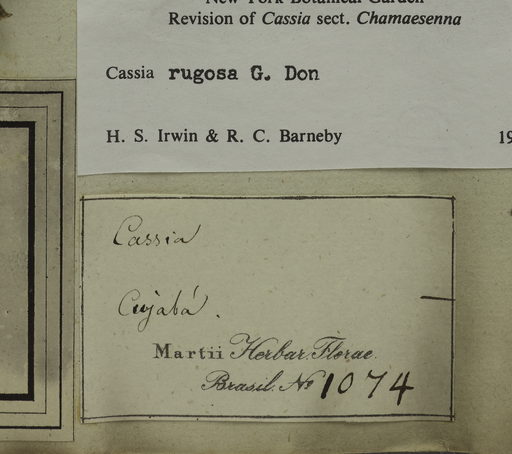 New York Botanical Garden
Revision of Cassia sect. Chamaesenna
Cassia rugosa G. Don
H. S. Irwin & R. C. Barneby 19
Cassia
Cujabá.
Martii Herbar. Florae
Brasil. No 1074